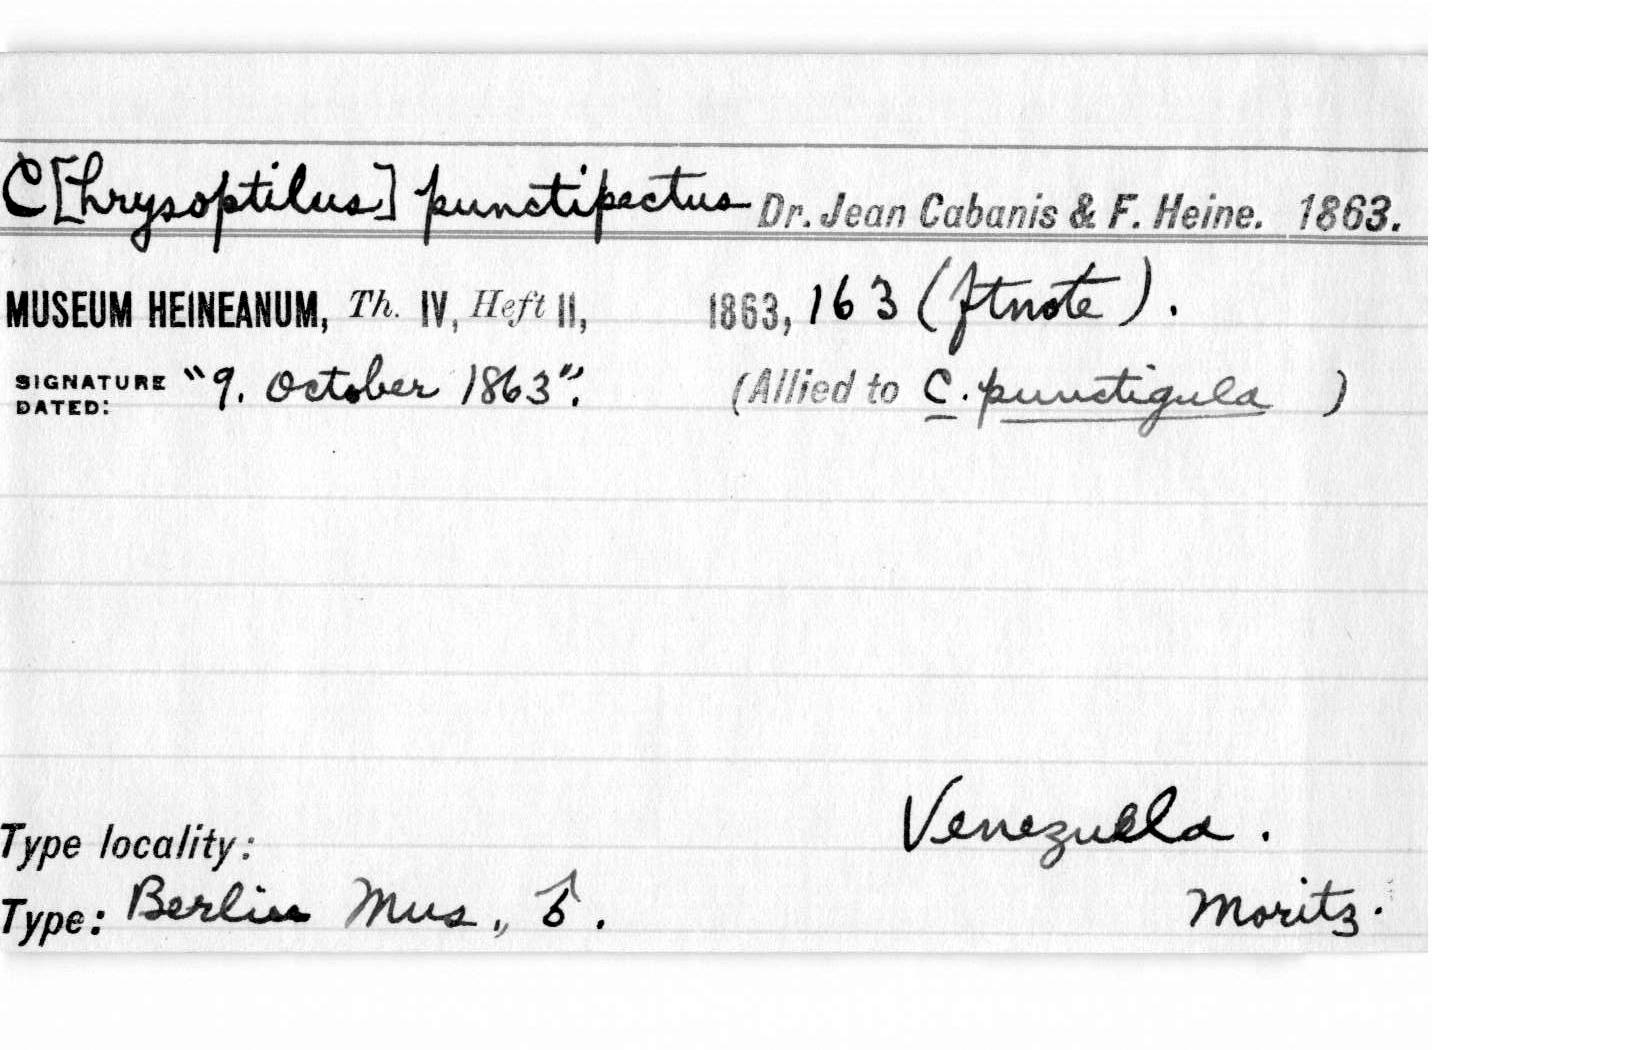 C[hrysoptilus] punctipectus Dr. Jean Cabanis & F. Heine. 1863.
MUSEUM HEINEANUM, Th. IV, Heft II, 1863, 163 (ftnote).
SIGNATURE DATED: "9. October 1863". (Allied to C. punctigula )
Type locality: Venezuela.
Type: Berlin Mus., ♂. Moritz.